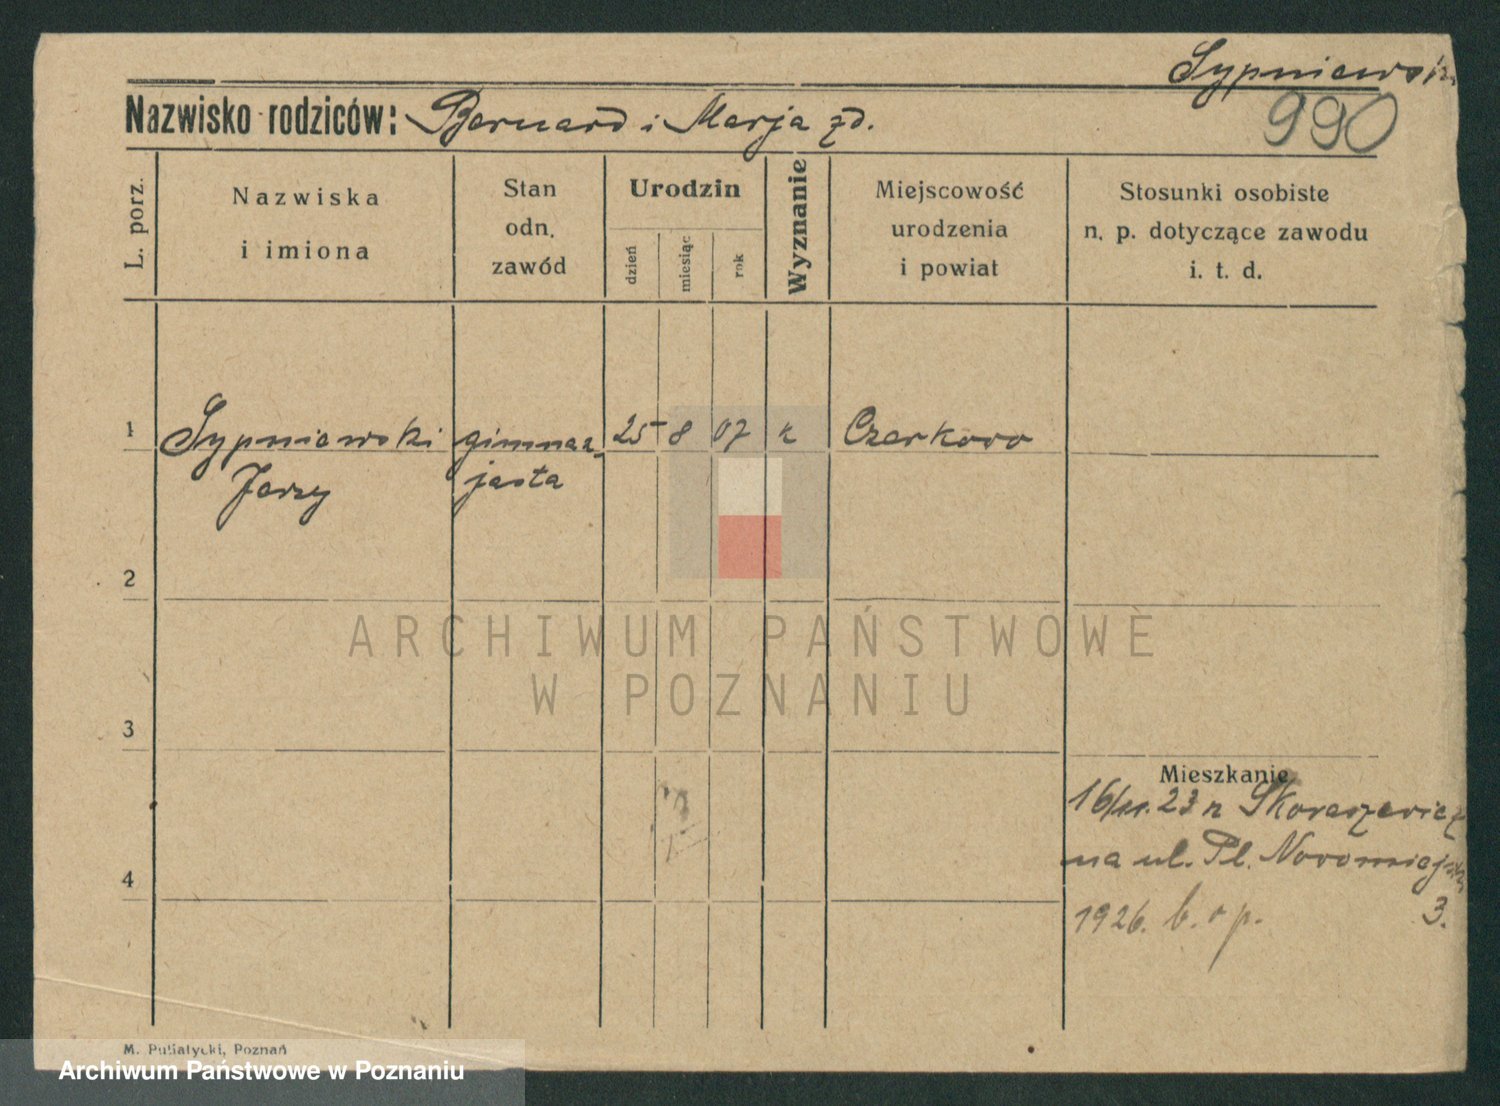 Sypniewski
990
Nazwisko rodziców: Bernard i Marja zd.
L. porz.
Nazwiska
i imiona
Stan
odn.
zawód
Urodzin
dzień
miesiąc
rok
Wyznanie
Miejscowość
urodzenia
i powiat
Stosunki osobiste
n. p. dotyczące zawodu
i. t. d.
1 Sypniewski gimnaz- 25 8 07 k Czerkowo
Jerzy jasta
2
3
4
Mieszkanie
23 Skoraszewicz
na ul. Pl. Nowomiejski
3.
1926. b. o p.
ARCHIWUM PAŃSTWOWE
W POZNANIU
M. Putiatycki, Poznań
Archiwum Państwowe w Poznaniu